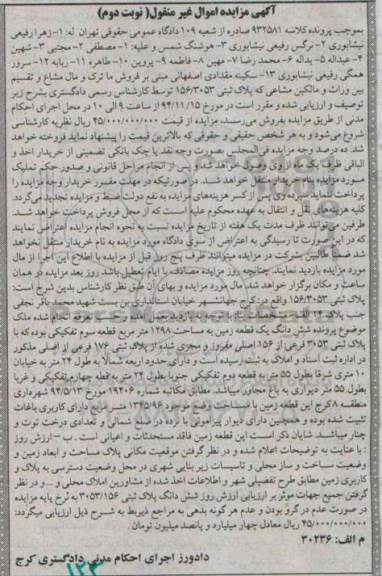 آگهی مزایده اموال غیر منقول( نوبت دوم)
بموجب پرونده کلاسه ۹۳۲۵۸۱ صادره از شعبه ۱۰۹ دادگاه عمومی حقوقی تهران له: ۱- زهرا رفیعی
نیشابوری ۲- نرگس رفیعی نیشابوری ۳- هوشنگ شمس و علیه: ۱- مصطفی ۲- مجتبی ۳- شهین
۴- عبداله ۵- یداله ۶- محمد رضا ۷- مهین ۸- فاطمه ۹- پروین ۱۰- طاهره ۱۱- ربابه ۱۲- سرور
همگی رفیعی نیشابوری ۱۳- سکینه مقدادی اصفهانی مبنی بر فروش ما ترک و مال مشاع و تقسیم
بین وراث و مالکین مشاعی که پلاک ثبتی ۱۵۶/۳۰۵۳ توسط کارشناس رسمی دادگستری بشرح زیر
توصیف و ارزیابی شده و مقرر است در مورخ ۹۴/۱۱/۱۵ از ساعت ۹ الی ۱۰ در محل اجرای احکام
مدنی از طریق مزایده بفروش می‌رسد، مزایده از قیمت ۴۵/۰۰۰/۰۰۰/۰۰۰ ریال نظریه کارشناسی
شروع می‌شود و به هر شخص حقیقی و حقوقی که بالاترین قیمت را پیشنهاد نماید فروخته خواهد
شد. ده درصد وجه مزایده فی‌المجلس بصورت وجه نقد یا چک بانکی تضمینی از خریدار اخذ و
الباقی ظرف یک ماه از وی وصول خواهد شد و پس از انجام مراحل قانونی و صدور حکم تملیک
مورد مزایده بنام خریدار منتقل خواهد شد. در صورتیکه در مهلت مقرر خریدار وجه مزایده را
پرداخت ننماید سپرده وی پس از کسر هزینه‌های مزایده به نفع دولت ضبط و مزایده تجدید می‌گردد.
کلیه هزینه‌های نقل و انتقال به عهده محکوم علیه است که از محل فروش پرداخت خواهد شد.
طرفین می‌توانند ظرف مدت یک هفته از تاریخ مزایده نسبت به نحوه انجام مزایده اعتراض نمایند
که در این صورت تا رسیدگی به اعتراض از سوی دادگاه مورد مزایده به نام خریدار منتقل نخواهد
شد ضمناً طالبین شرکت در مزایده میتوانند ظرف پنج روز قبل از مزایده با اطلاع این اجرا از مال
مورد مزایده بازدید نمایند. چنانچه روز مزایده مصادف با ایام تعطیل باشد روز بعد مزایده در همان
ساعت و مکان برگزار خواهد شد. مال مورد مزایده و بهای آن طبق نظر کارشناس بدین شرح است:
پلاک ثبتی ۱۵۶/۳۰۵۳ واقع در: کرج جهانشهر خیابان استانداری بن بست شهید محمد باقر نجفی
جنب پلاک
موضوع پرونده شش دانگ یک قطعه زمین به مساحت ۱۲۹۸ متر مربع قطعه سوم تفکیکی بوده که با
پلاک ثبتی ۳۰۵۳ فرعی از ۱۵۶ اصلی مفروز و مجزی شده از پلاک ثبتی ۱۷۶ فرعی از اصلی مذکور
در اداره ثبت اسناد و املاک به ثبت رسیده است و دارای حدود اربعه شمالا به طول ۲۴ متر به خیابان
۱۰ متری شرقا بطول ۵۵ متر به قطعه دوم تفکیکی جنوبا بطول ۲۴ متر به قطعه چهارم تفکیکی و غربا
بطول ۵۵ متر دیواری به باغ مجاور میباشد. مطابق مکاتبه شماره ۱۹۴۰۶ مورخ ۹۴/۵/۱۳ شهرداری
منطقه ۸ کرج این قطعه زمین با مساحت وضع موجود ۱۳۴۵/۹۶ مترمربع دارای کاربری باغات
تثبیت شده بوده و همچنین دارای دیوار پیرامونی با نرده در ضلع شمالی و تعدادی درخت توت و
چنار میباشد. شایان ذکر است این قطعه زمین فاقد مستحدثات و اعیانی است. ب – ارزش روز
: با عنایت به توضیحات اعلام شده و در نظر گرفتن موقعیت مکانی پلاک مساحت و ابعاد زمین و
وضعیت ساخت و ساز محلی و تاسیسات زیر بنایی شهری در محل وضعیت دسترسی به پلاک و
کاربری زمین مطابق طرح تفضیلی شهر و اطلاعات اخذ شده از مشاورین املاک محلی و ... و در نظر
گرفتن جمیع جهات موثر بر ارزیابی ارزش روز شش دانگ پلاک ثبتی ۳۰۵۳/۱۵۶ به نرخ پایه مزایده
در صورت عدم در گرو بودن و عدم هر گونه بدهی به مراجع ذیربط به شرح ذیل ارزیابی میگردد:
۴۵/۰۰۰/۰۰۰/۰۰۰ ریال معادل چهار میلیارد و پانصد میلیون تومان.
م الف: ۳۰۲۳۶
دادورز اجرای احکام مدنی دادگستری کرج
۱۲۳